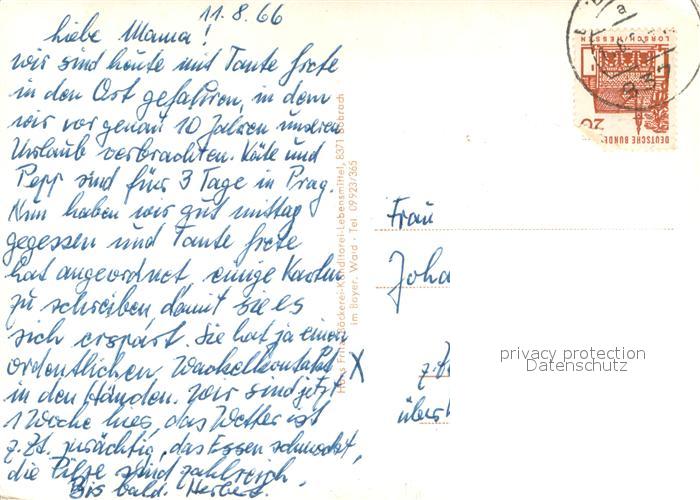 11.8.66
Liebe Mama!
wir sind heute mit Tante Grete
in den Ort gefahren, in dem
wir vor genau 10 Jahren unseren
Urlaub verbrachten. Käte und
Pepp sind für 3 Tage in Prag.
Nun haben wir gut mittag
gegessen und Tante Grete
hat angeordnet einige Karten
zu schreiben damit sie es
sich erspart. Sie hat ja einen
ordentlichen Wackelkontakt
in den Händen. Wir sind jetzt
1 Woche hier, das Wetter ist
z.Zt. prächtig, das Essen schmeckt,
die Pilze sind zahlreich.
Bis bald. Herbert.
Hans Fritz, Bäckerei-Konditorei-Lebensmittel, 8371 Bobrach
im Bayer. Wald · Tel 09923/365
Frau
Joha
X
z.Zt
über
privacy protection
Datenschutz
DEUTSCHE BUNDE
LORSCH/HESSEN
20